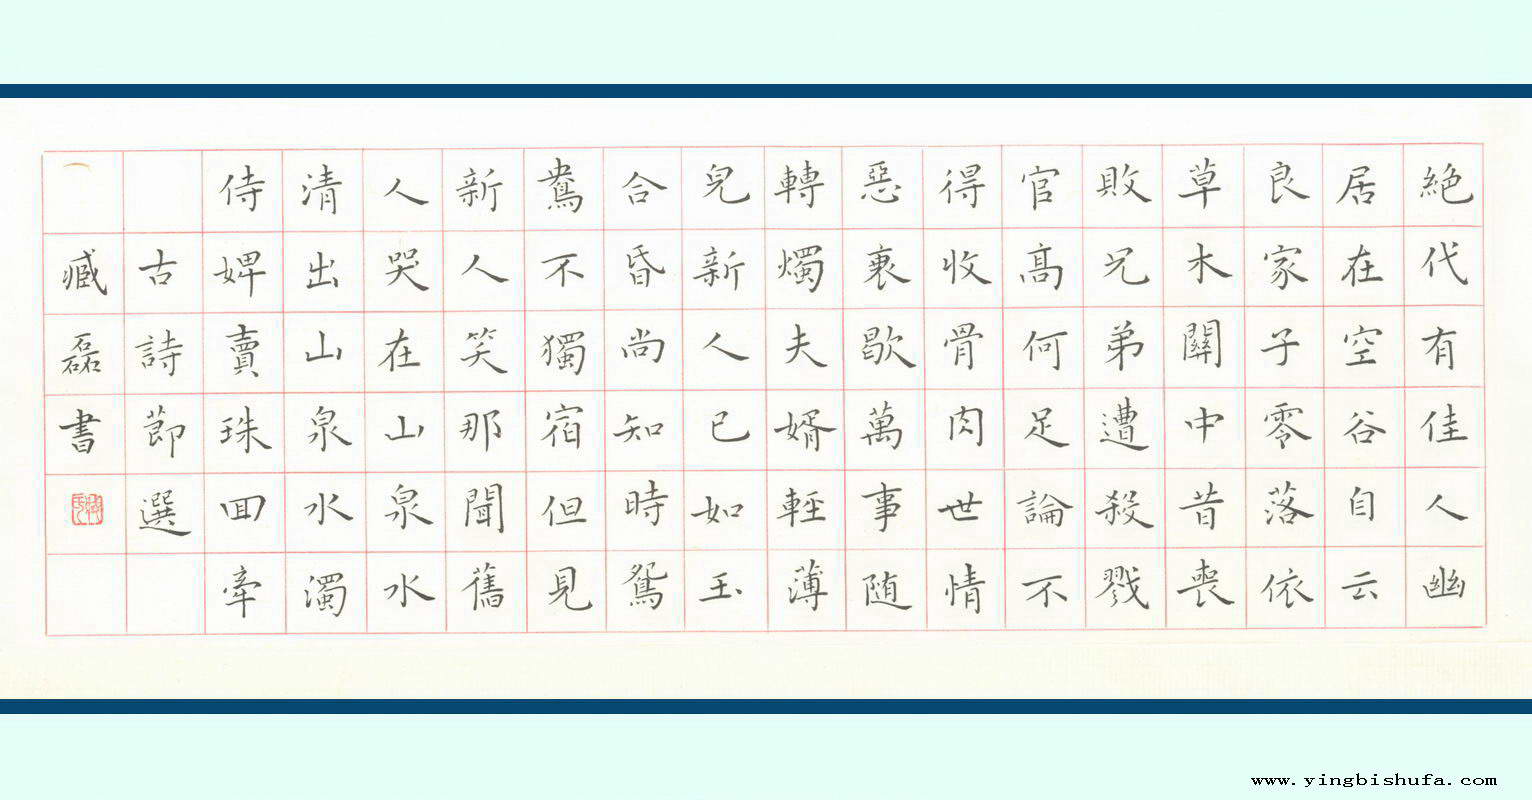 絶代有佳人幽
居在空谷自云
良家子零落依
草木關中昔喪
敗兄弟遭殺戮
官高何足論不
得收骨肉世情
惡衰歇萬事随
轉燭夫婿輕薄
兒新人已如玉
合昏尚知時鴛
鴦不獨宿但見
新人笑那聞舊
人哭在山泉水
清出山泉水濁
侍婢賣珠囬牽
古詩節選
臧磊書
www.yingbishufa.com